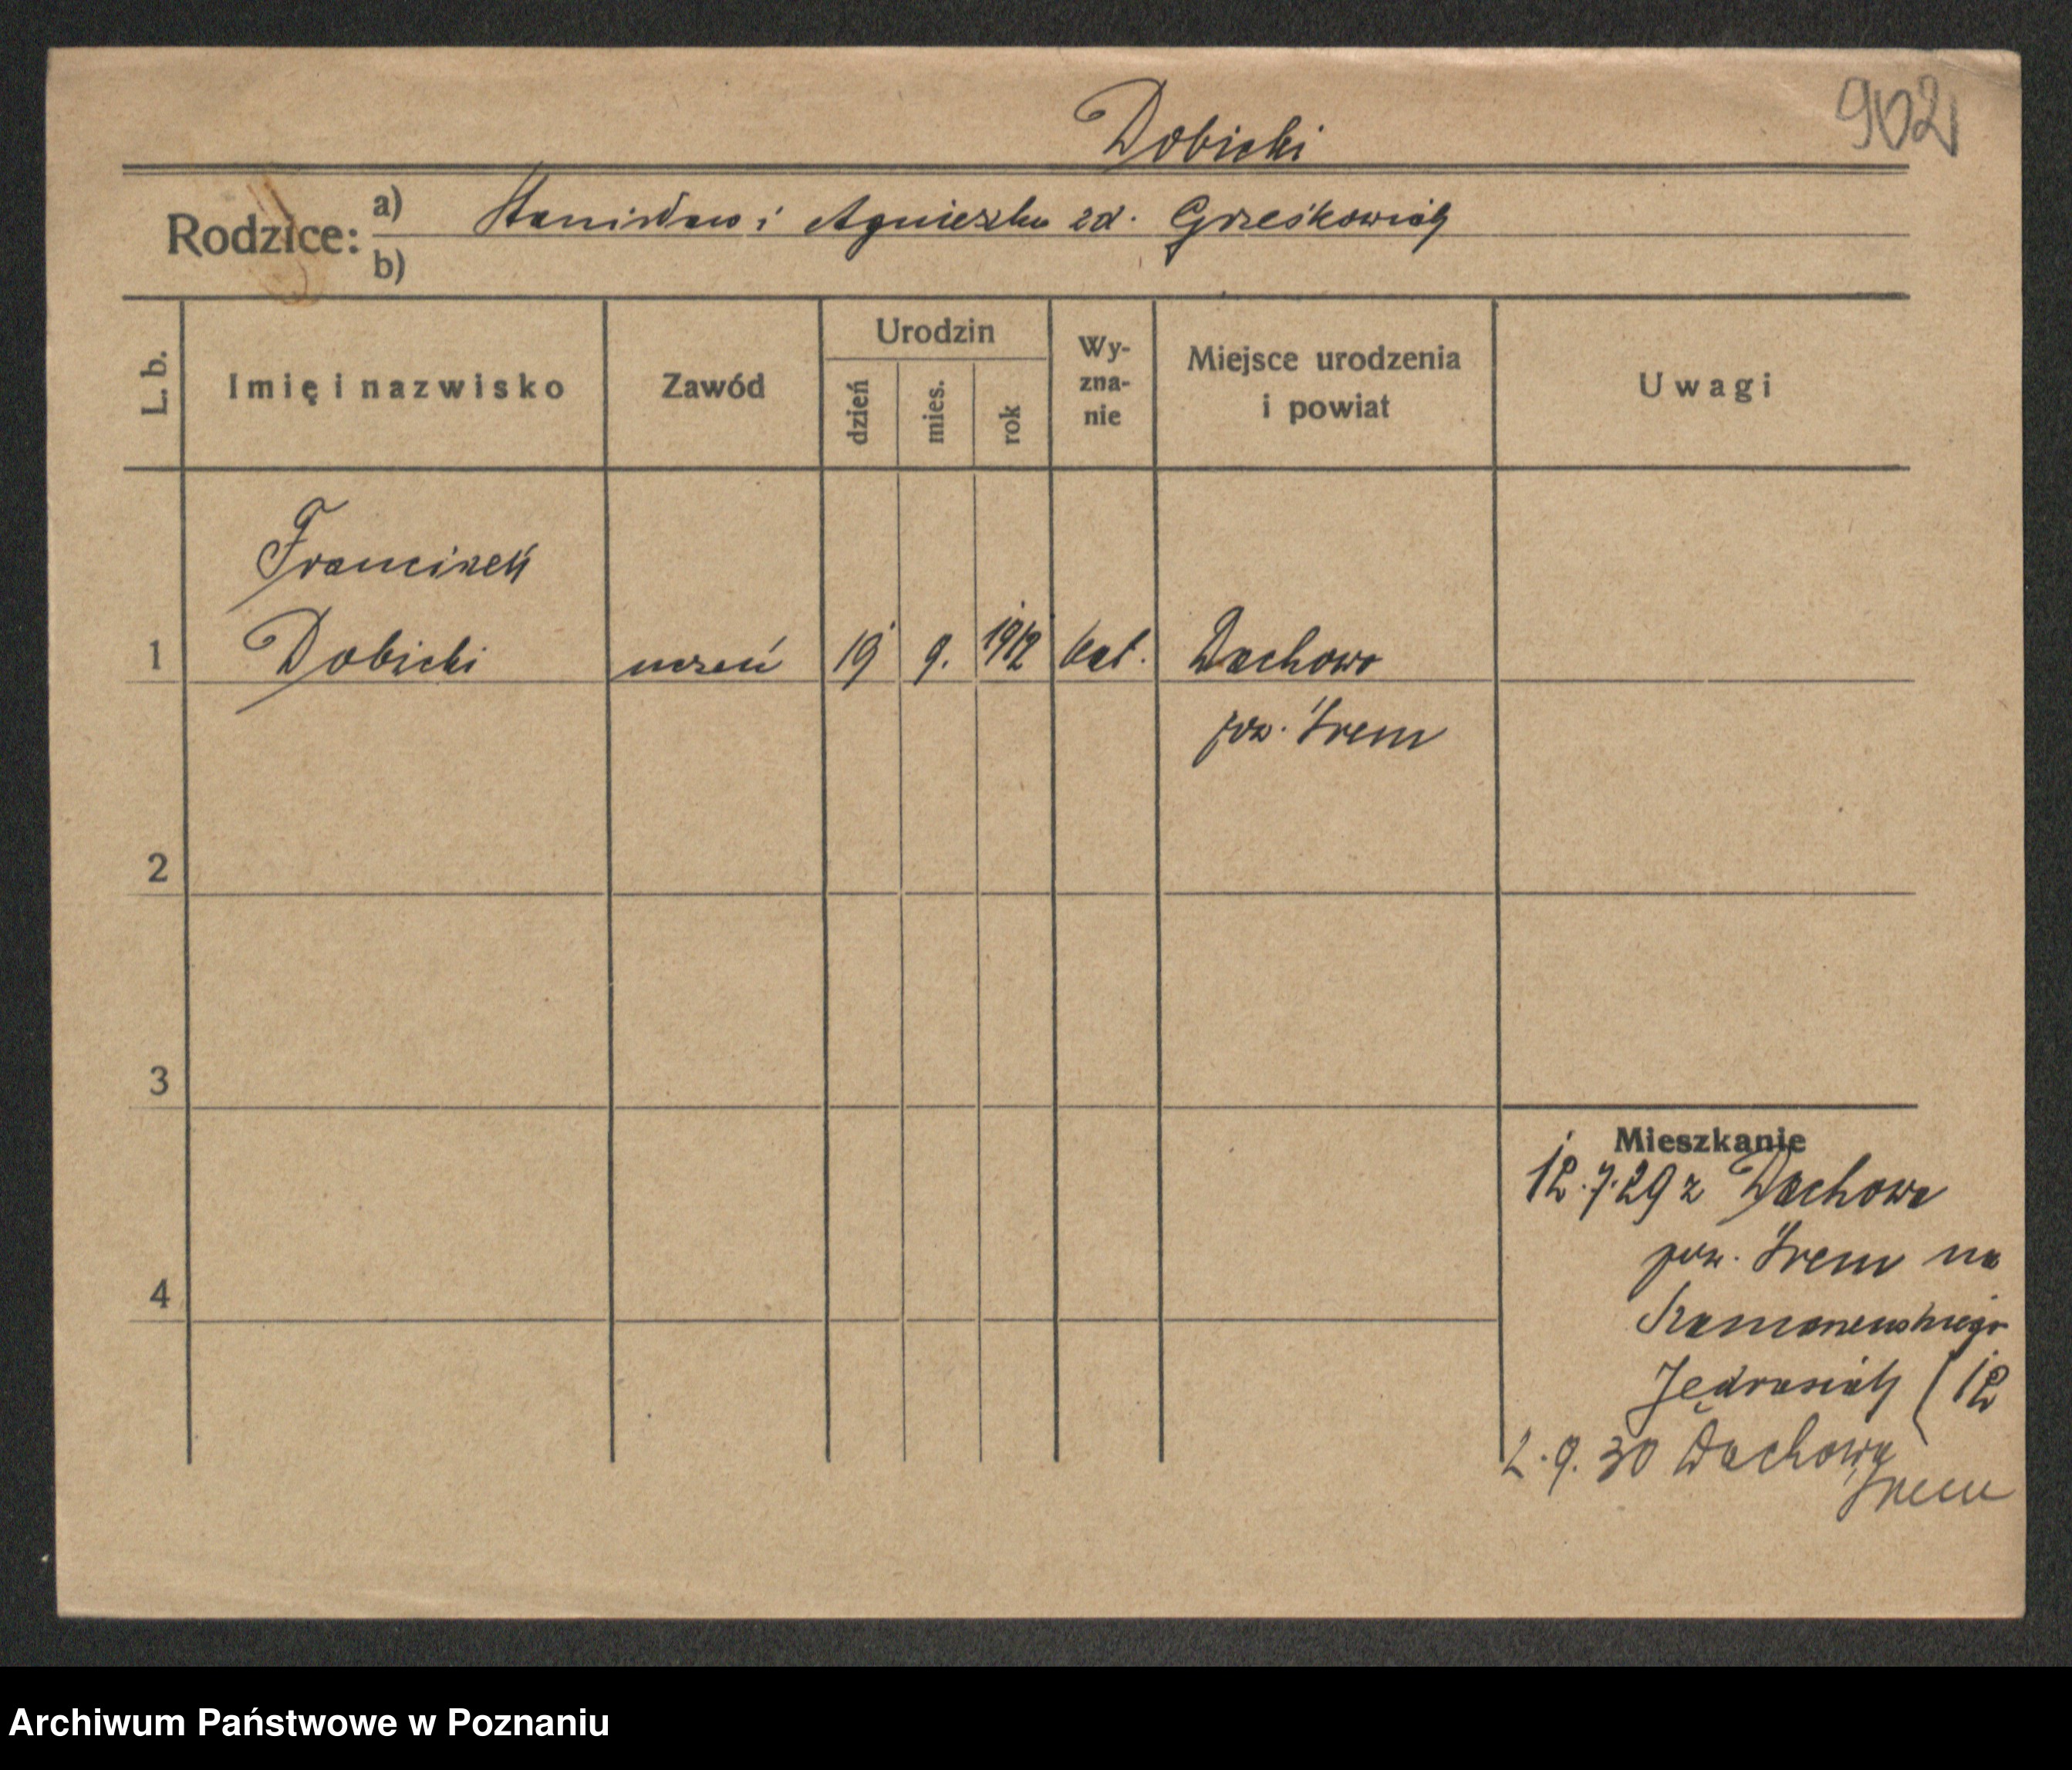 902
Dobicki
Rodzice: a) Stanisław i Agnieszka zd. Grześkowiak
b)
L. b. Imię i nazwisko Zawód Urodzin dzień mies. rok Wy-zna-nie Miejsce urodzenia i powiat Uwagi
Franciszek
1 Dobicki uczeń 19 9. 1912 kat. Dachowo
pow. Śrem
2
3
Mieszkanie
12.7.29 z Dachowa
pow. Śrem na
4
Jędrasiak (12
2.9.30 Dachowa
Śrem
Archiwum Państwowe w Poznaniu